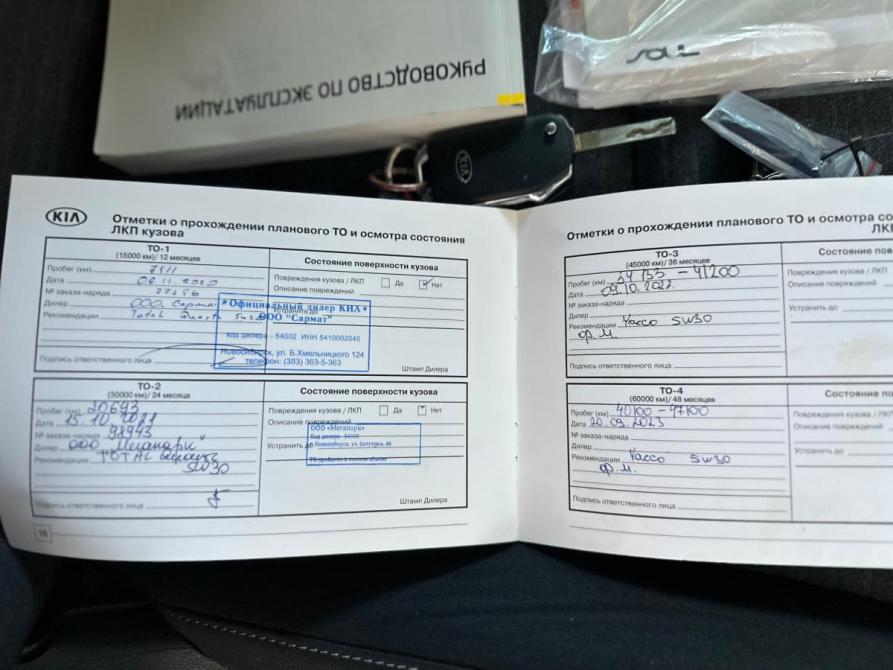 РУКОВОДСТВО ПО ЭКСПЛУАТАЦИИ
SOUL
KIA
KIA
Отметки о прохождении планового ТО и осмотра состояния
ЛКП кузова
ТО-1
(15000 км)/ 12 месяцев
Пробег (км) 7511
Дата 06.11.2020
№ заказа-наряда 27256
Дилер ООО Сармат
Рекомендации Total Quartz 5w30
Подпись ответственного лица
Состояние поверхности кузова
Повреждения кузова / ЛКП Да Нет
Описание повреждений
Устранить до
Штамп Дилера
*Официальный дилер КИА*
ООО "Сармат"
код дилера - 54002 ИНН 5410002040
Новосибирск, ул. Б.Хмельницкого 124
телефон: (383) 363-5-363
ТО-2
(30000 км)/ 24 месяца
Пробег (км) 20693
Дата 15.10.2021
№ заказа-наряда 98943
Дилер ООО "Мегапарк"
Рекомендации TOTAL
5W30
Подпись ответственного лица
Состояние поверхности кузова
Повреждения кузова / ЛКП Да Нет
Описание повреждений
Устранить до
Штамп Дилера
ООО «Мегапарк»
Код дилера - 54
Новосибирск, ул.
16
Отметки о прохождении планового ТО и осмотра со
ЛК
ТО-3
(45000 км)/ 36 месяцев
Пробег (км) 34 153 - 41200
Дата 09.10.2022
№ заказа-наряда
Дилер
Рекомендации Yacco 5w30
ф.м.
Подпись ответственного лица
Состояние пов
Повреждения кузо
Описание поврежд
Устранить до
ТО-4
(60000 км)/ 48 месяцев
Пробег (км) 40100 - 47100
Дата 20.09.2023
№ заказа-наряда
Дилер
Рекомендации Yacco 5w30
ф.м.
Подпись ответственного лица
Состояние по
Повреждения куз
Описание повреж
Устранить до